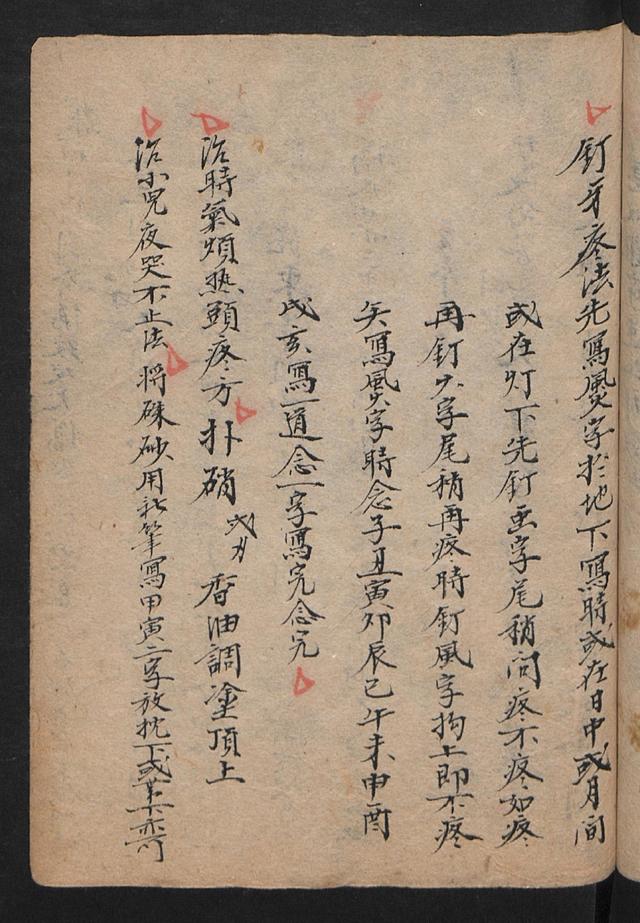 釘牙疼法先寫風火虫字於地下寫時或在日中或月間
或在灯下先釘虫字尾稍问疼不疼如疼
再釘火字尾稍再疼時釘風字拘上即不疼
矣寫風火字時念子丑寅卯辰巳午未申酉
戌亥寫一道念一字寫完念完
治時氣煩热頭疼方 朴硝 香油調塗頂上
治小児夜哭不止法 將硃砂用新筆寫甲寅二字放枕下或草下亦可